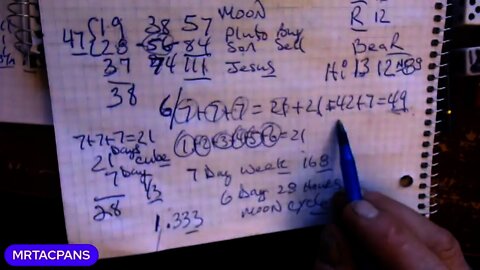 19 38 57 MOON
47 28 56 84 Pluto Buy
Sun Sell
37 74 111 Jesus
38
R 12
BeaR
Hi 13 12
6/7+7+7 = 21 + 21 + 42 + 7 = 49
7+7+7=21
1+2+3+4+5+6=21
Days
21 cube
7 Day
13
28
7 Day Week 168
6 Day 28 Hours
MOON cycle
1.333
MRTACPANS